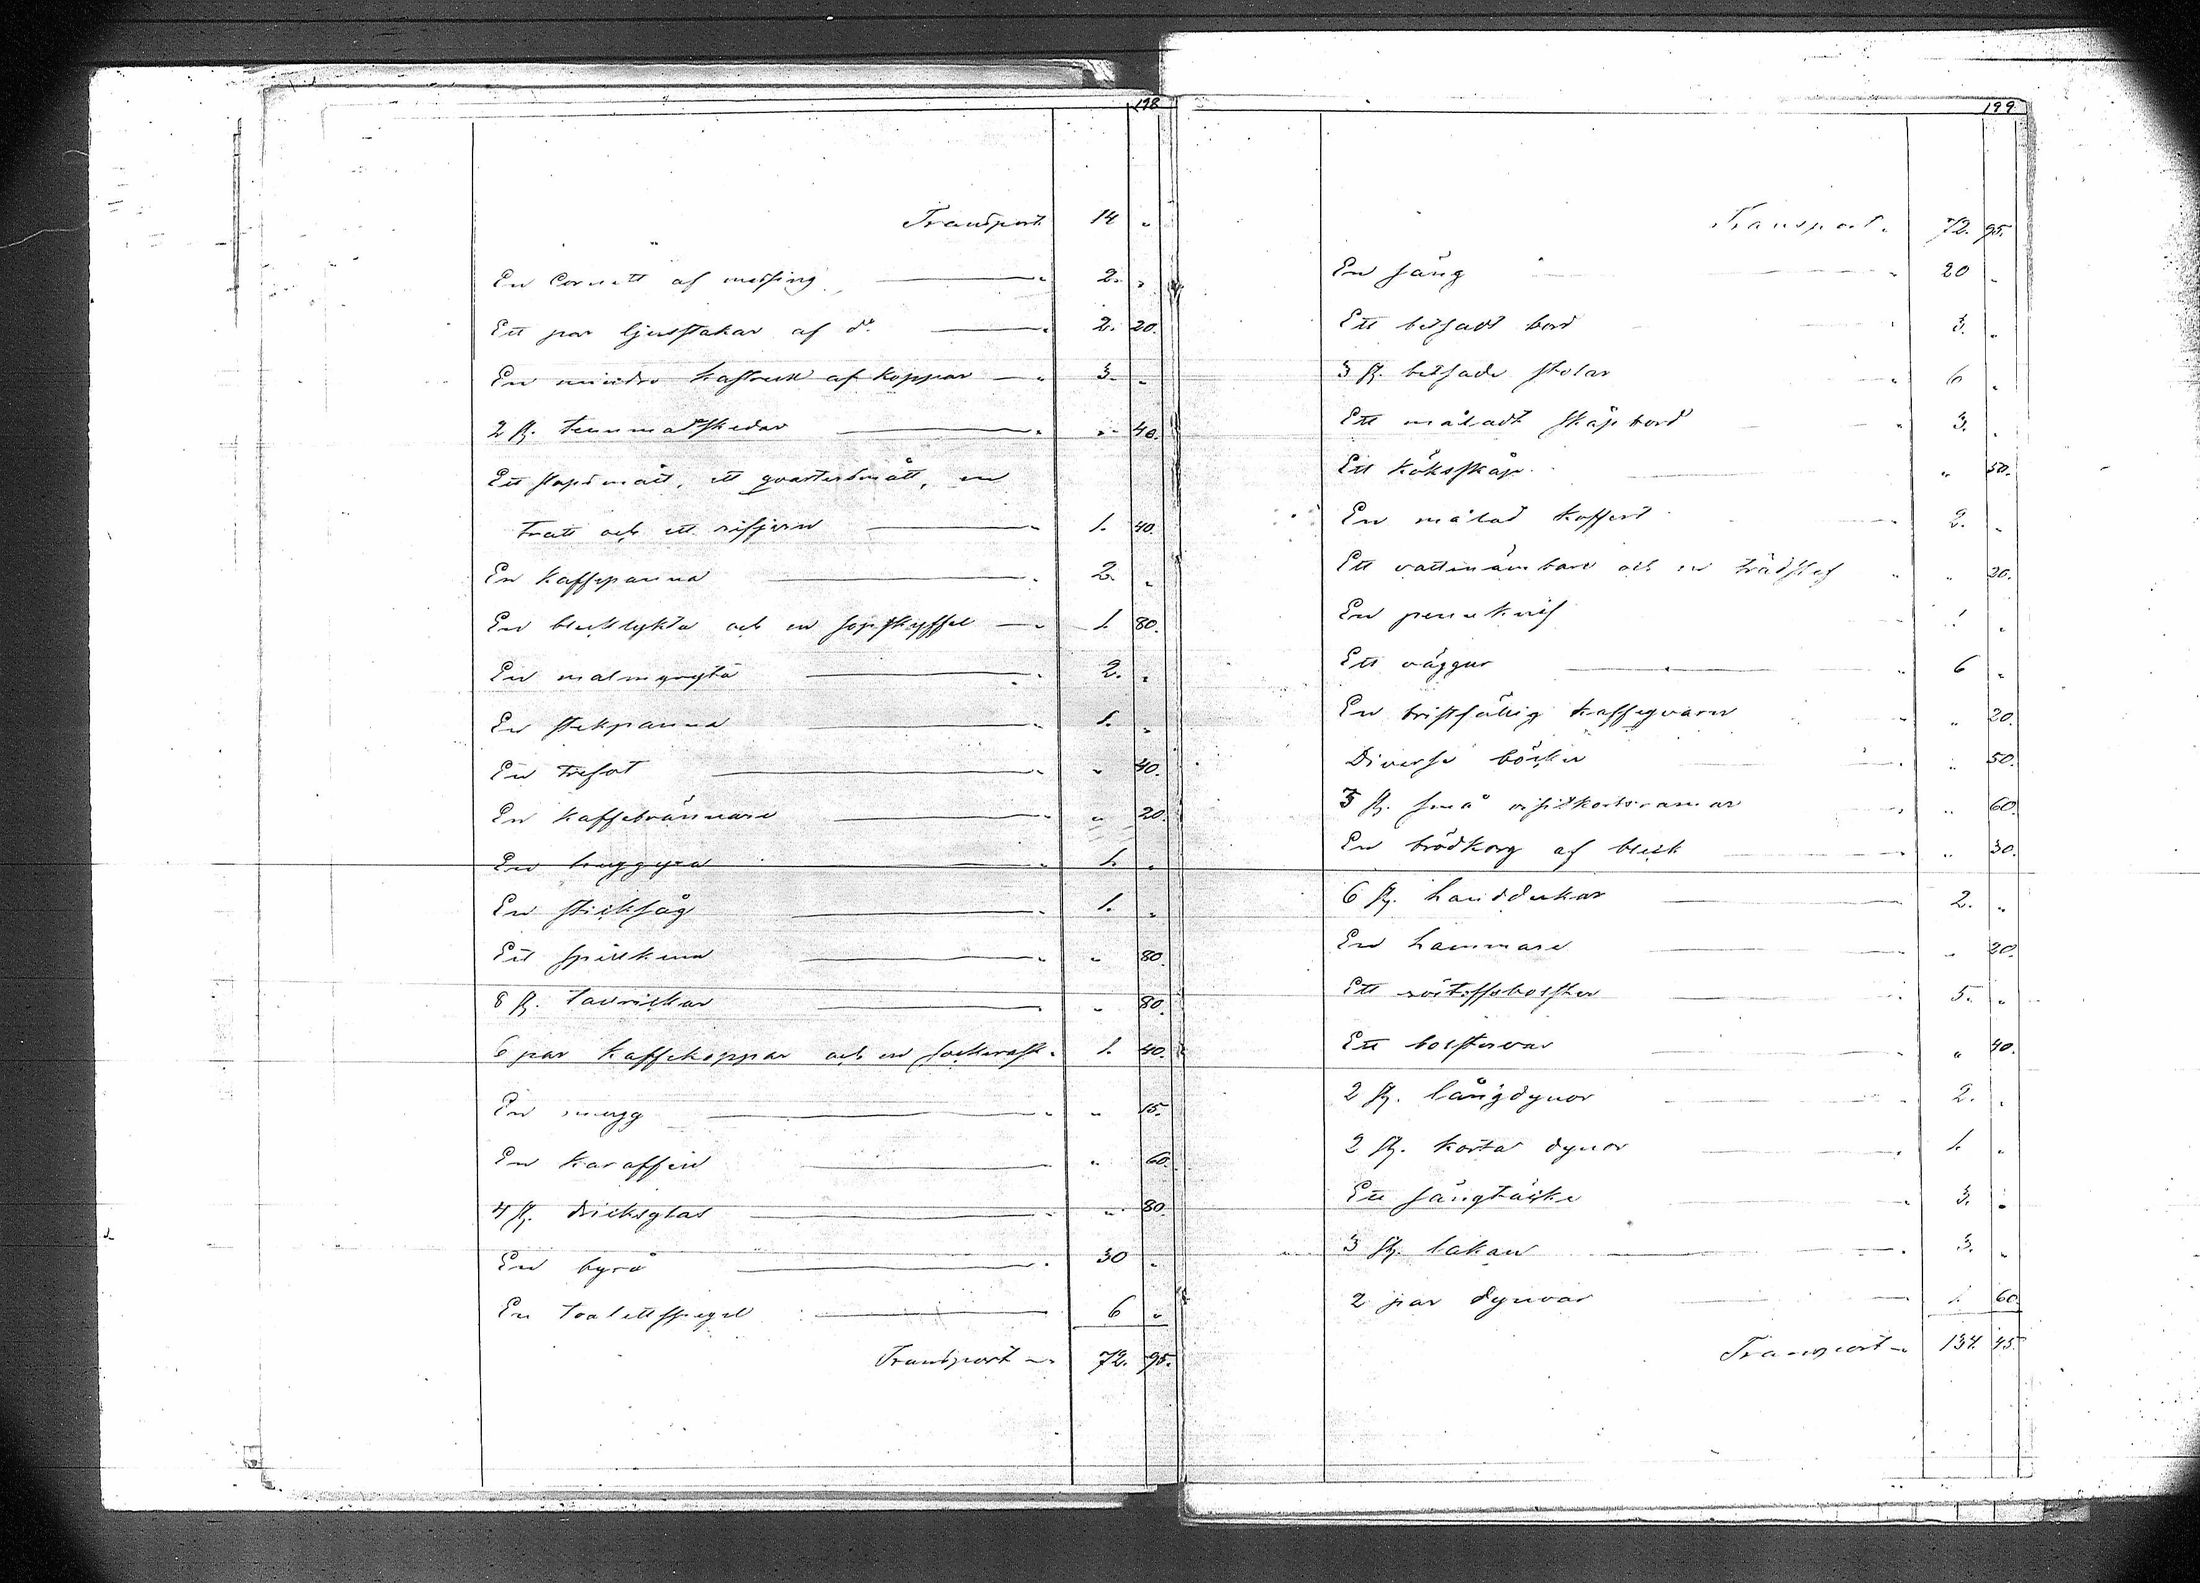 198
Transport 14 "
En Cornett af messing " 2. "
Ett par ljusstakar af d:o " 2. 20.
En mindre kastrull af koppar " 3. "
2 st. tennmatskedar " " 40.
Ett stopsmått, ett qvartersmått, en
tratt och ett rifjern " 1. 40.
En kaffepanna " 2. "
En blecklykta och en sopskyffel " 1. 80.
En malmgryta " 2. "
En stekpanna " 1. "
En trefot " " 40.
En kaffebrännare " " 20.
En huggyxa " 1. "
En sticksåg " 1. "
Ett " " 80.
8 st. tallrickar " " 80.
6 par kaffekoppar och en sockerask " 1. 40.
En mugg " " 15.
En karaffin " " 60.
4 st. dricksglas " " 80.
En byrå " 30 "
En toalettspegel " 6 "
Transport " 72. 95.
199
Transport " 72. 95.
En säng " 20 "
Ett betsadt bord " 3. "
3 st. betsade stolar " 6 "
Ett måladt skåpbord " 3. "
Ett köksskåp " " 50.
En målad koffert " 2. "
Ett vattenämbare och en " "
En pennknif " 1 "
Ett väggur " 6 "
En bristfällig kaffeqvarn " " 20.
Diverse böcker " " 50.
3 st. små visitkortsramar " " 60.
En brödkorg af bleck " " 30.
6 st. handdukar " 2. "
En hammare " " 20.
Ett bolster " 5. "
Ett bolstervar " " 40.
2 st. långdynor " 2. "
2 st. korta dynor " 1. "
Ett sängtäcke " 3. "
3 st. lakan " 3. "
2 par dynvar " 1. 60.
Transport " 134. 45.